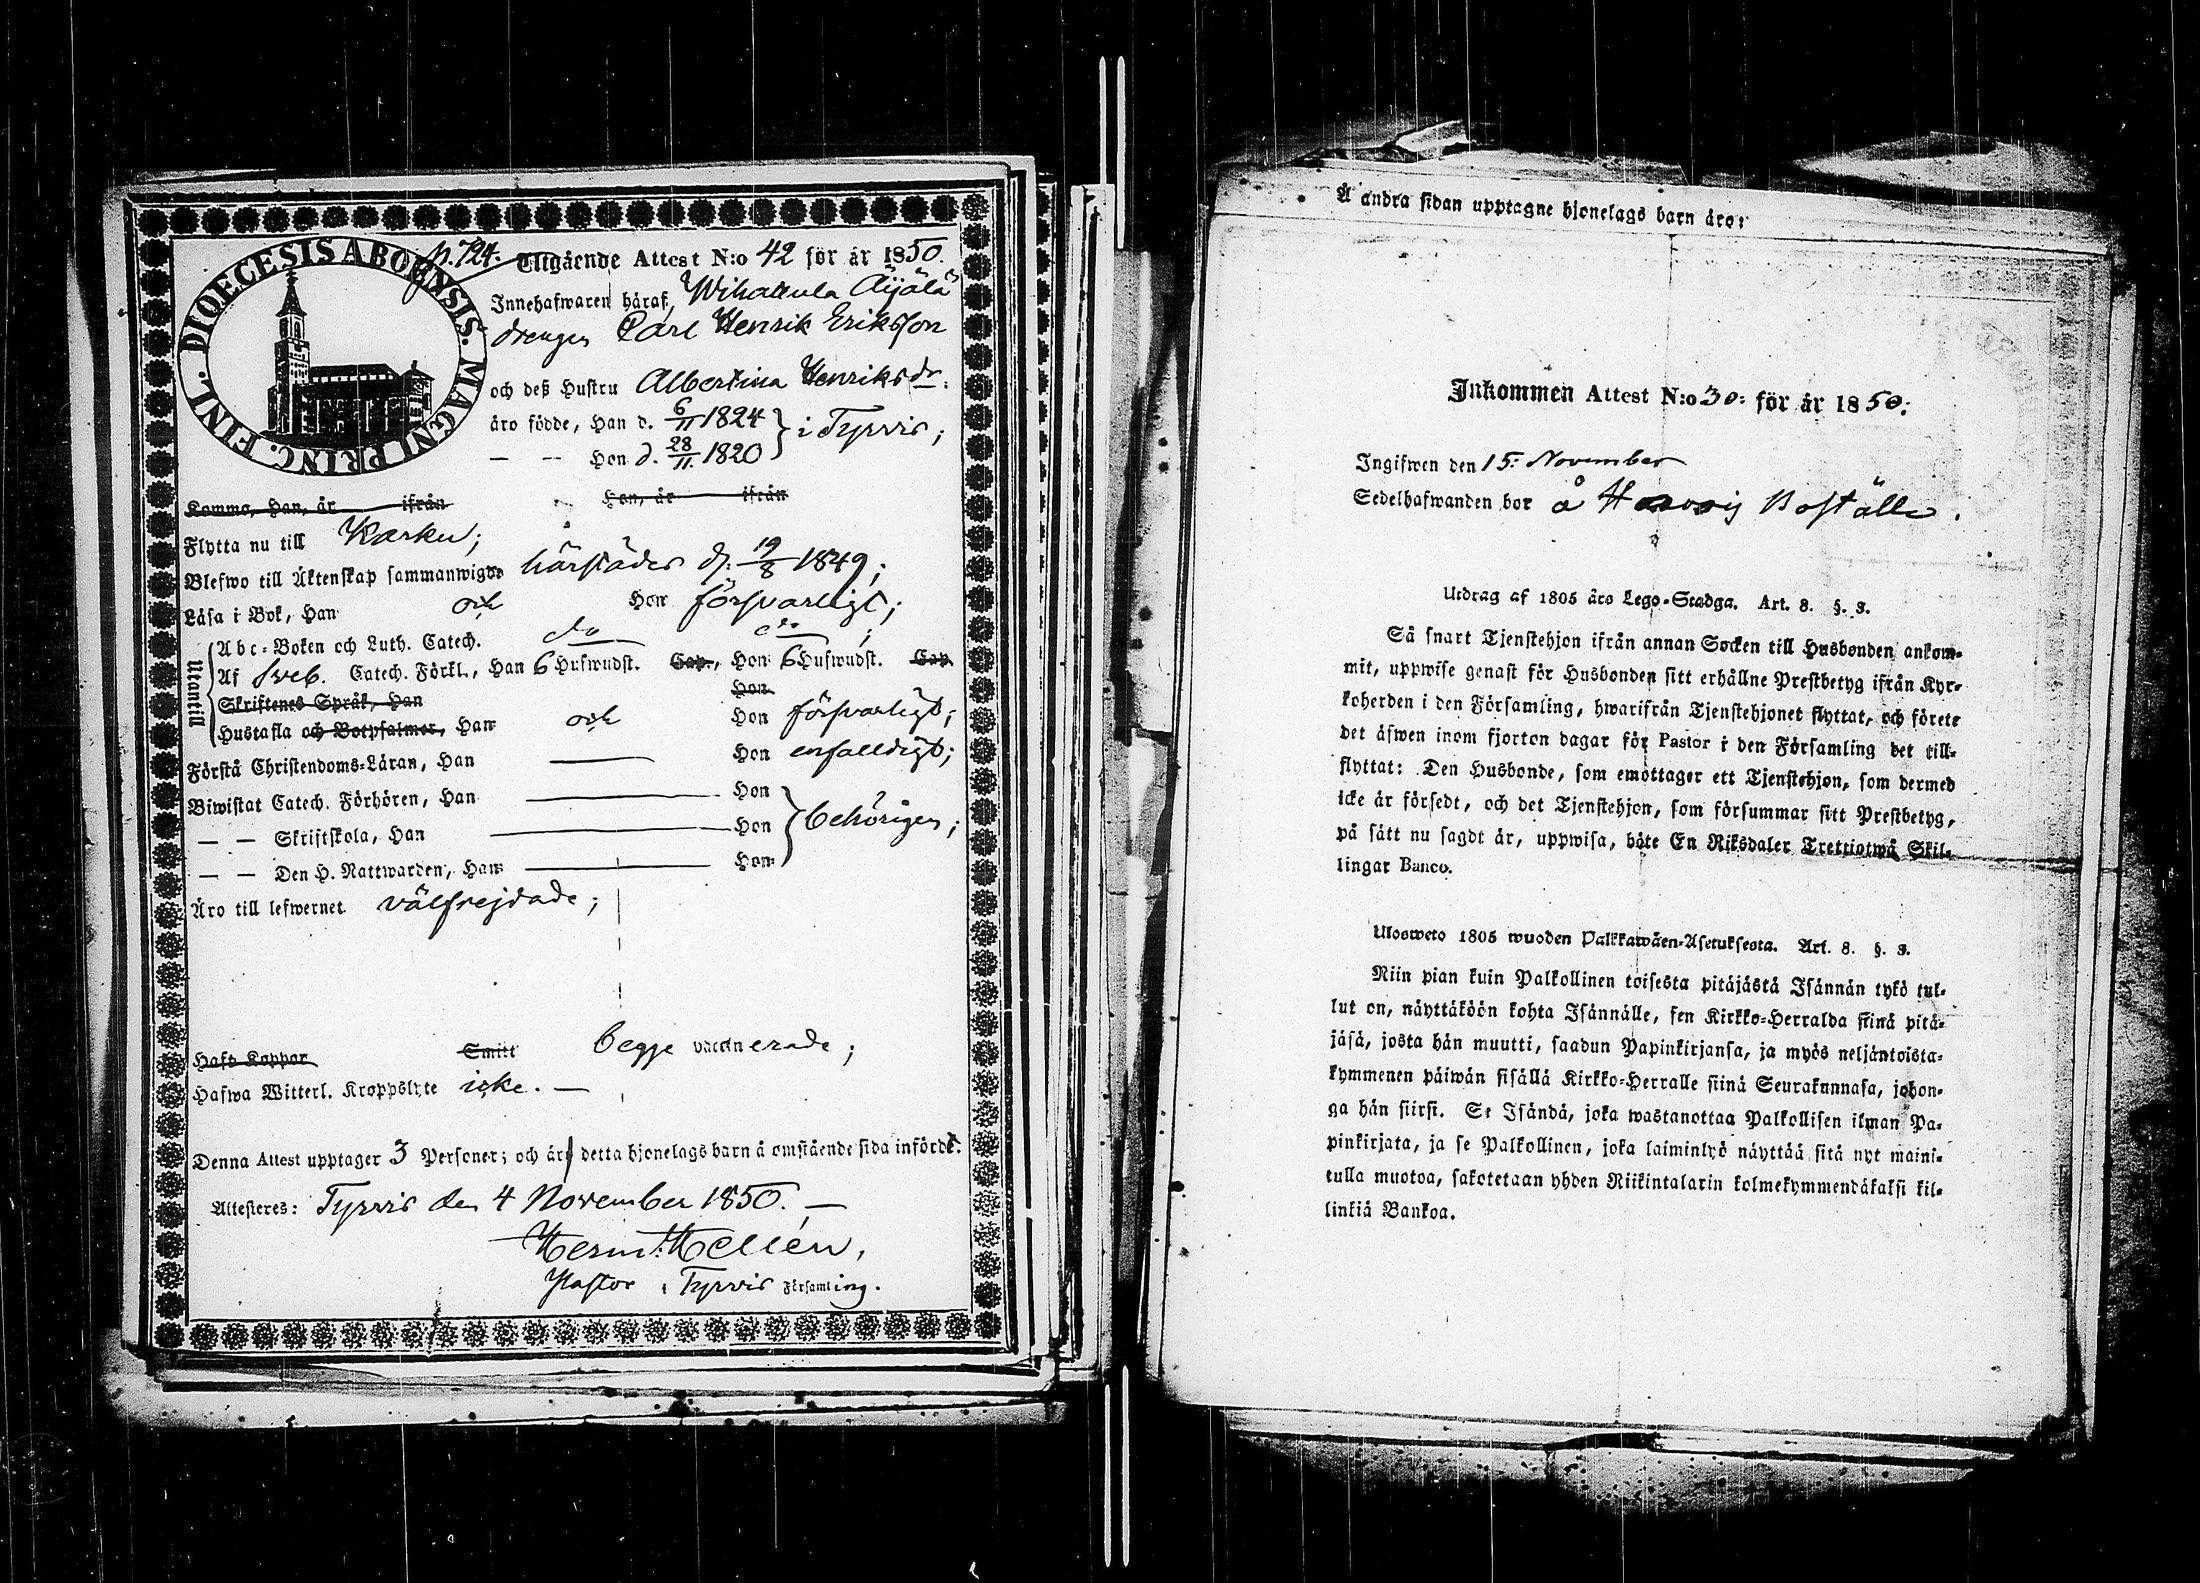 DIOECESIS ABOENSIS. MAGNI PRINC. FINL.
p. 724. Utgående Attest N:o 42 för år 1850.
Innehafwaren häraf, Äijälä
drengen Carl Henrik Eriksson
och deß Hustru Albertina Henriksdr.
äro födde, Han d. 6/11 1824 } i Tyrvis;
— — Hon d. 28/11. 1820
Kommo, Han, år ifrån Hon, år ifrån
Flytta nu till Karku;
Blefwo till Äktenskap sammanwigde härstädes d. 19/8 1849;
Läsa i Bok, Han och Hon försvarligt;
Utantill
Abc-Boken och Luth. Catech. do do;
Af Sveb. Catech. Förkl., Han 6 Hufwudst. Cap., Hon 6 Hufwudst. Cap.
Skriftenes Språk, Han Hon
Hustafla och Botpsalmer, Han och Hon försvarligt;
Förstå Christendoms-Läran, Han — Hon enfalldigt;
Biwistat Catech. Förhören, Han — Hon
— — Skriftskola, Han — Hon } behörigen;
— — Den H. Nattwarden, Han — Hon
Äro till lefwernet välfrejdade;
Haft Koppor Smitt begge vaccinerade;
Hafwa Witterl. Kroppslyte icke. —
Denna Attest upptager 3 Personer; och äro detta hjonelags barn å omstående sida införde.
Attesteres: Tyrvis den 4 November 1850. —
Herm. Hellén,
Pastor i Tyrvis Församling.
Å andra sidan upptagne hjonelags barn äro:
Inkommen Attest N:o 30: för år 1850:
Ingifwen den 15: November
Sedelhafwanden bor å Boställe.
Utdrag af 1805 års Lego-Stadga. Art. 8. §. 3.
Så snart Tjenstehjon ifrån annan Socken till Husbonden ankom-
mit, uppwise genast för Husbonden sitt erhållne Prestbetyg ifrån Kyr-
koherden i den Församling, hwarifrån Tjenstehjonet flyttat, och förete
det äfwen inom fjorton dagar för Pastor i den Församling det till-
flyttat: Den Husbonde, som emottager ett Tjenstehjon, som dermed
icke är försedt, och det Tjenstehjon, som försummar sitt Prestbetyg,
på sätt nu sagdt är, uppwisa, böte En Riksdaler Trettiotwå Skil-
lingar Banco.
Ulosweto 1805 wuoden Palkkawäen-Asetuksesta. Art. 8. §. 3.
Niin pian kuin Palkollinen toisesta pitäjästä Isännän tykö tul-
lut on, näyttäköön kohta Isännälle, sen Kirkko-Herralda siinä pitä-
jäsä, josta hän muutti, saadun Papinkirjansa, ja myös neljäntoista-
kymmenen päiwän sisällä Kirkko-Herralle siinä Seurakunnasa, johon-
ga hän siirsi. Se Isändä, joka wastanottaa Palkollisen ilman Pa-
pinkirjata, ja se Palkollinen, joka laiminlyö näyttää sitä nyt maini-
tulla muotoa, sakotetaan yhden Riikintalarin kolmekymmendäkaksi kil-
linkiä Bankoa.